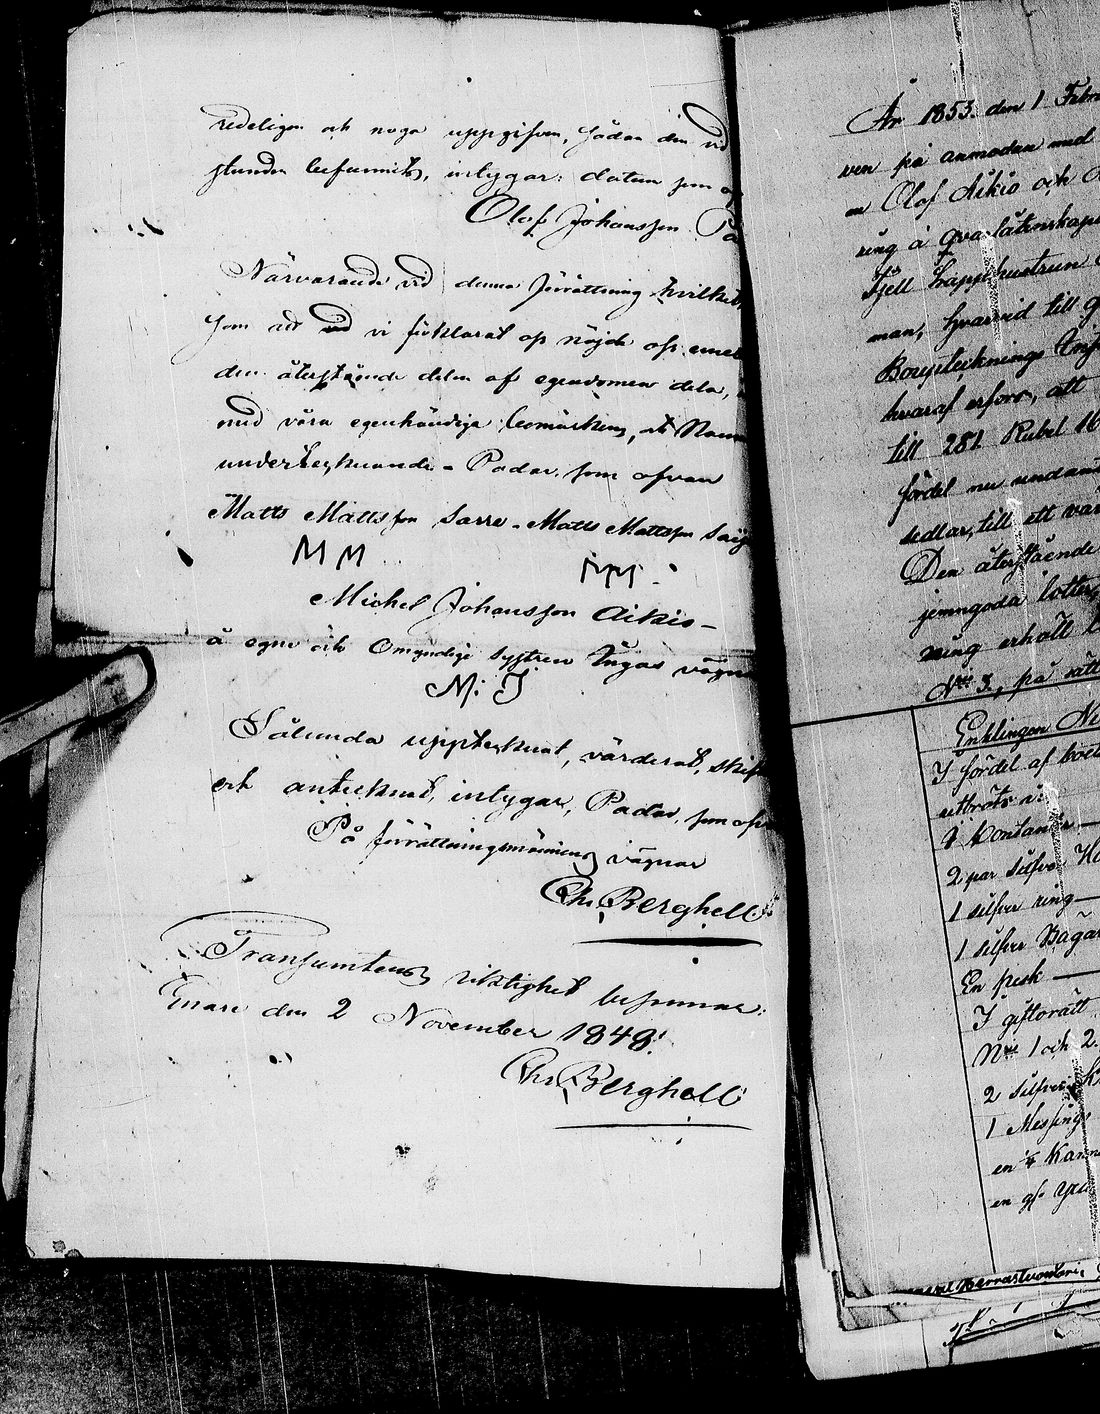 redeligen och noga uppgifven, sådan den vid
stunden befunnits, intygar: datum som of
Olof Johansson Pa
Närvarande vid denna förrättning hvilket
som vid vi förklarat oss nöjde oss emel
den återstående delen af egendomen dela,
med våra egenhändiga bomärken, och Namn
underteknande - Padar, som ofvan
Matts Mattsson Sarre - Matts Mattsson Saij
MM MM
Michel Johansson Aikio -
å egne och Omyndige systren Ingas vägnar
M: J
Sålunda uppteknat, värderat, skif
och anteknat, intygar, Padar, som ofv
På förrättningsmännens vägnar
Chr Berghell
Transumtens riktighet bestyrkes:
Enare den 2 November 1848!
Chr Berghell
År 1853. den 1 Febru
ven på anmodan med
en Olof Aikio och
ring å qvarlåtenskape
Fjell Lapphustrun
man, hvarvid till g
Bouptecknings Inst
hvaraf erfors, att
till 281 Rubel 16
fördel nu undant
sedlar, till ett vär
Den återstående
jemngoda lotter,
ning erhöll
N:o 3, på sätt
Enklingen Ni
I fördel af boet
utbröts
I Kontanter
2 par silfver
1 silfver ring
1 silfver Bägar
En pesk
I giftorätt
N:o 1 och 2.
2 silfver
1 Messings
en ¼ Kann
en gf.